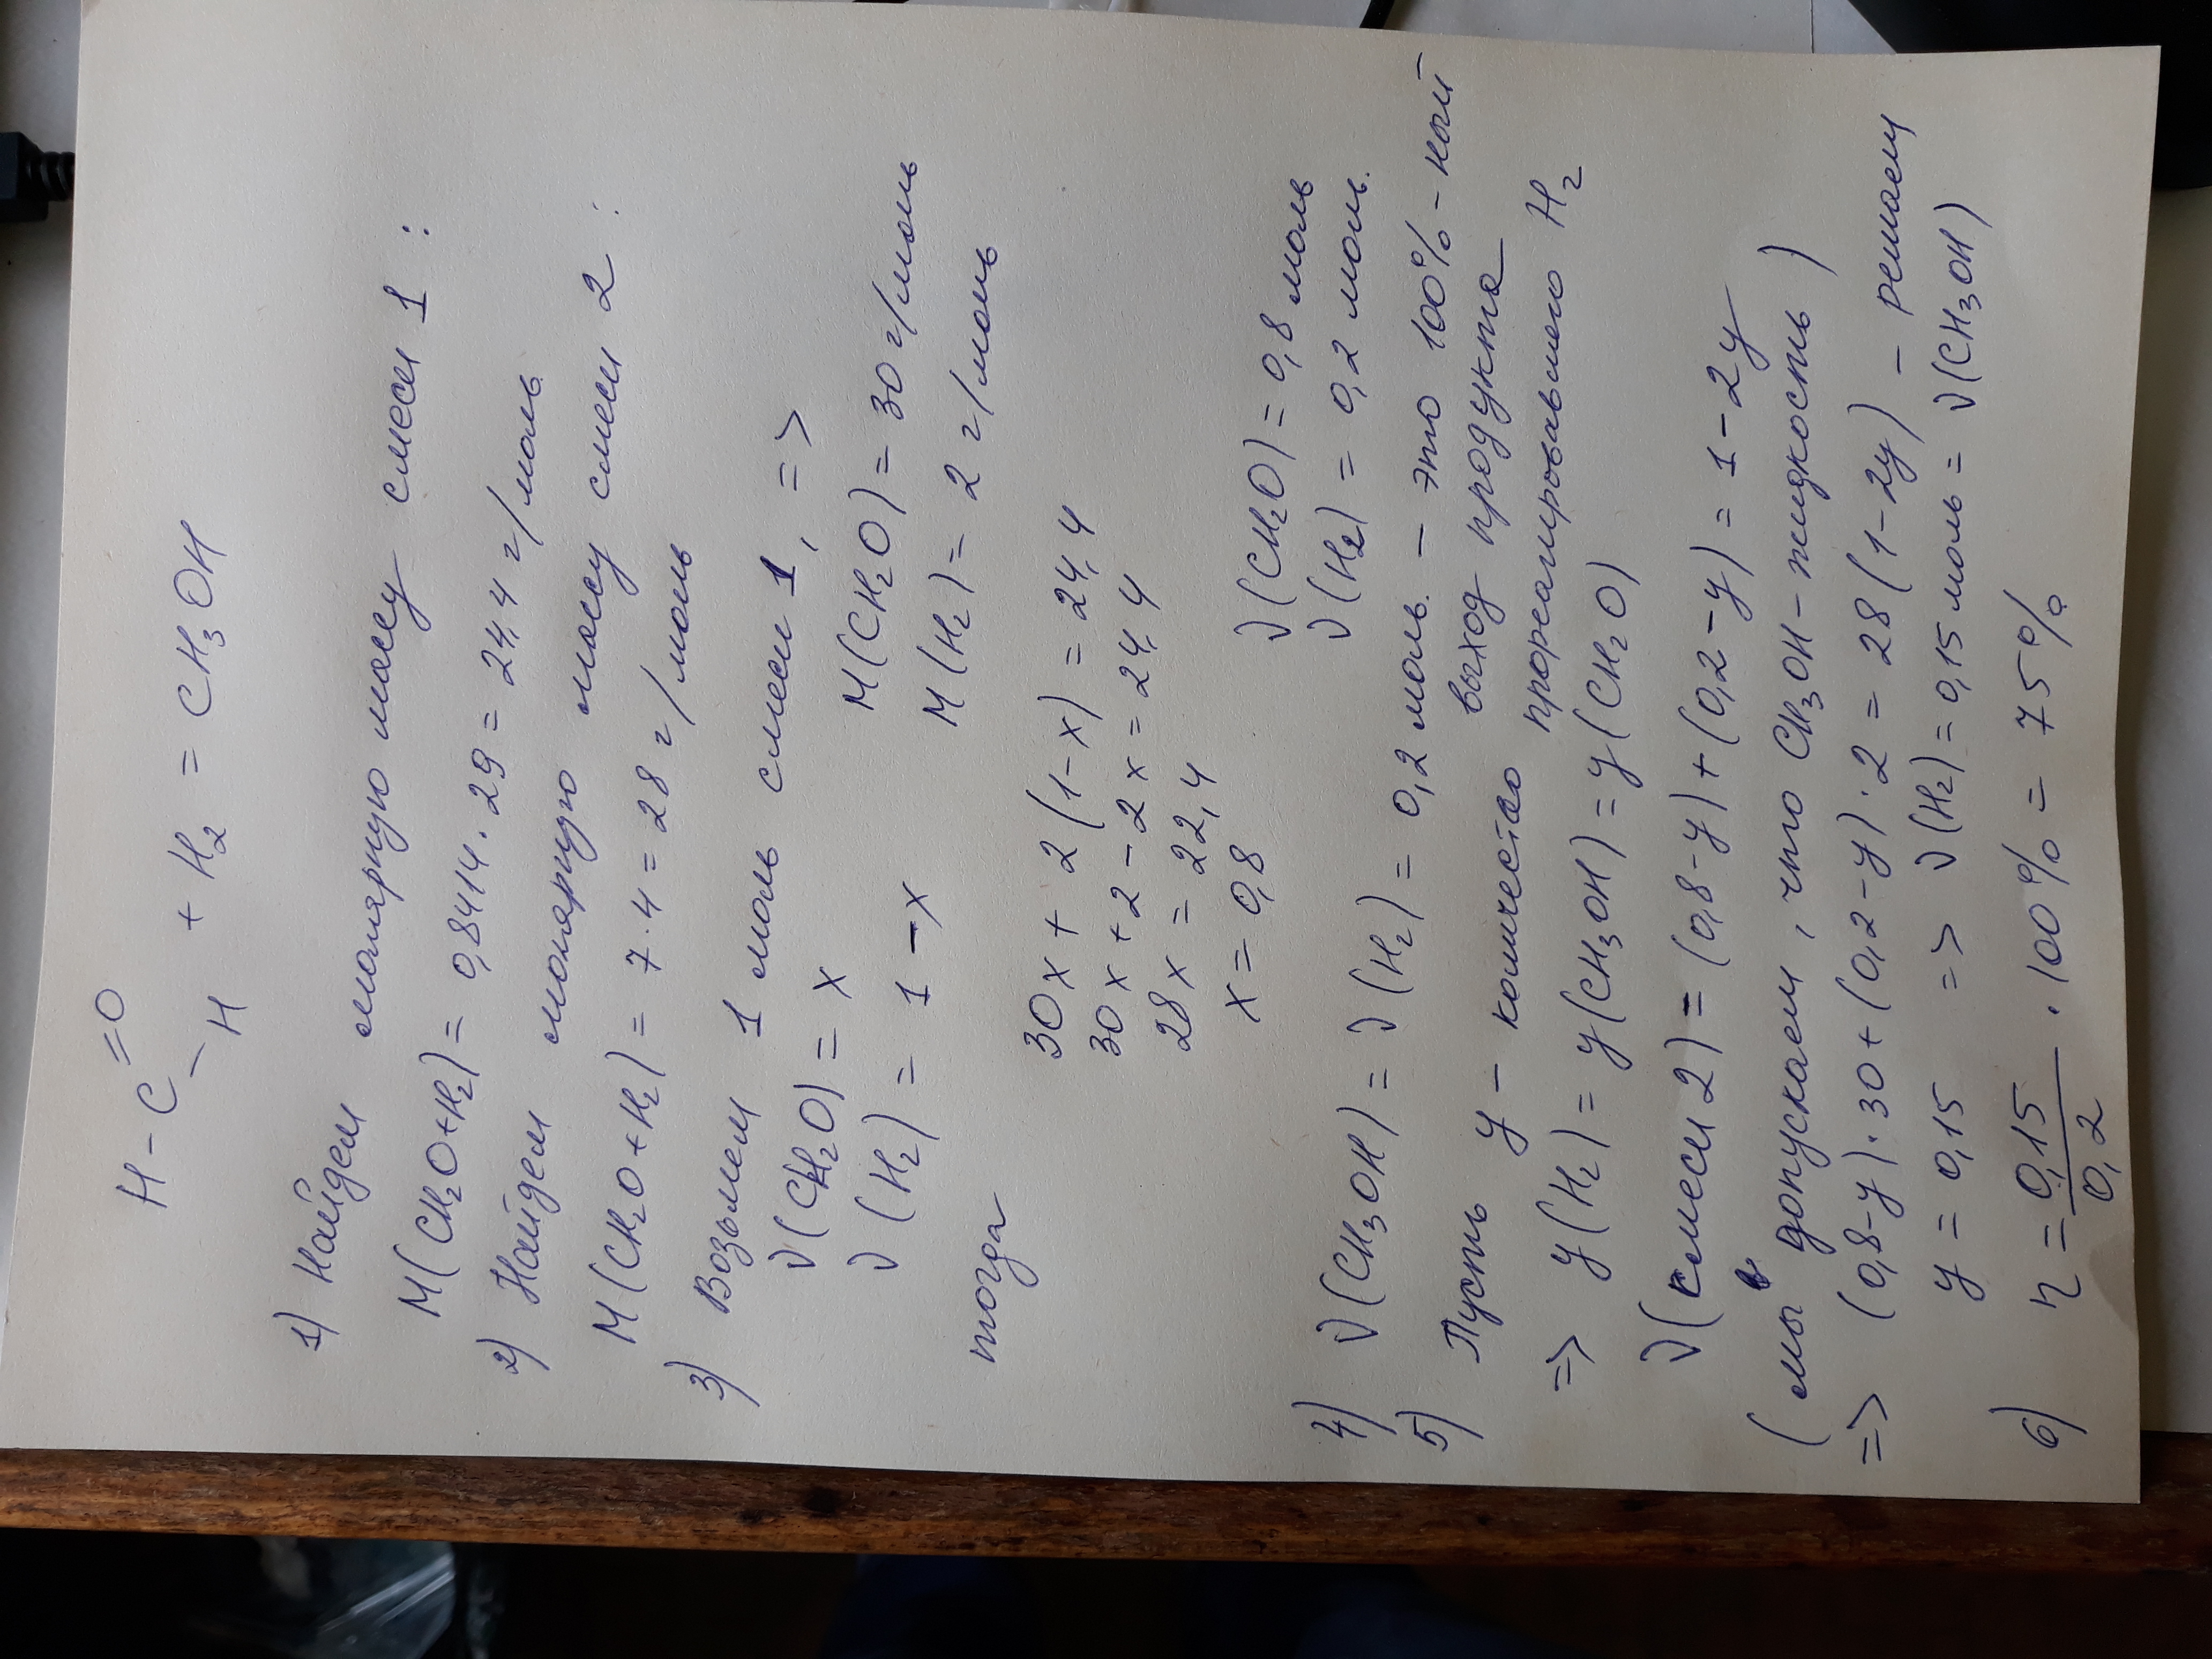 H - C =O
- H + H₂ = CH₃OH
1) Найдем молярную массу смеси 1 :
M(CH₂O+H₂) = 0,8414 · 29 = 24,4 г/моль
2) Найдем молярную массу смеси 2 :
M(CH₂O+H₂) = 7 · 4 = 28 г/моль
3) Возьмем 1 моль смеси 1, =>
ν(CH₂O) = x M(CH₂O) = 30 г/моль
ν(H₂) = 1 - x M(H₂) = 2 г/моль
тогда
30x + 2(1-x) = 24,4
30x + 2 - 2x = 24,4
28x = 22,4
x = 0,8 ν(CH₂O) = 0,8 моль
ν(H₂) = 0,2 моль.
4) ν(CH₃OH) = ν(H₂) = 0,2 моль. - это 100% - ный
выход продукта
5) Пусть y - количество прореагировавшего H₂
=> y(H₂) = y(CH₃OH) = y(CH₂O)
ν(смеси 2) = (0,8-y) + (0,2-y) = 1-2y
(мы допускаем, что CH₃OH - жидкость)
=> (0,8-y)·30 + (0,2-y)·2 = 28(1-2y) - решаем
y = 0,15 => ν(H₂) = 0,15 моль = ν(CH₃OH)
6) η = 0,15/0,2 · 100% = 75%